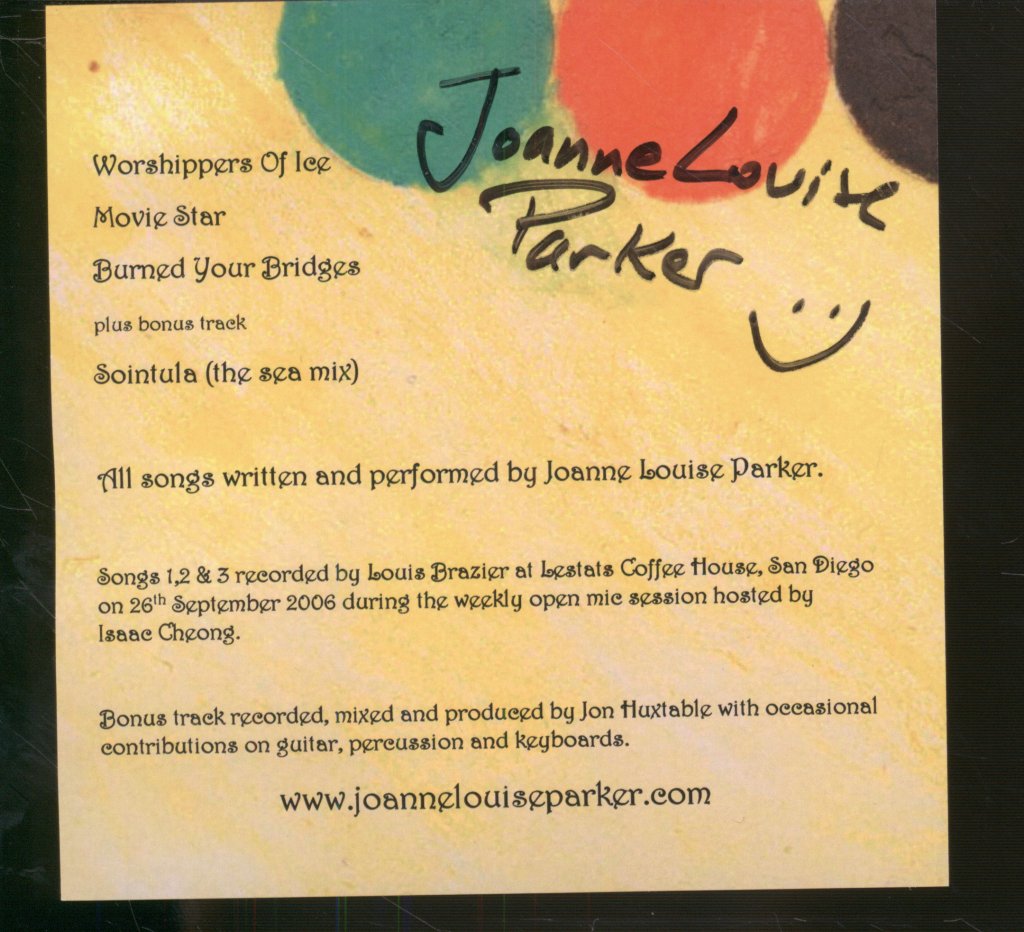 Joanne Louise
Parker
Worshippers Of Ice
Movie Star
Burned Your Bridges
plus bonus track
Sointula (the sea mix)
All songs written and performed by Joanne Louise Parker.
Songs 1,2 & 3 recorded by Louis Brazier at Lestats Coffee House, San Diego
on 26th September 2006 during the weekly open mic session hosted by
Isaac Cheong.
Bonus track recorded, mixed and produced by Jon Huxtable with occasional
contributions on guitar, percussion and keyboards.
www.joannelouiseparker.com